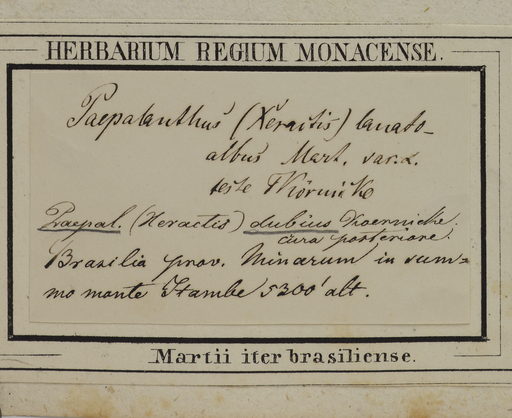 HERBARIUM REGIUM MONACENSE.
Paepalanthus (Xeractis) lanato-
albus Mart. var. α.
teste Körnicke
Paepal. (Xeractis) dubius Koernicke.
cura posteriore.
Brasilia prov. Minarum in sum=
mo monte Itambe 5300' alt.
Martii iter brasiliense.